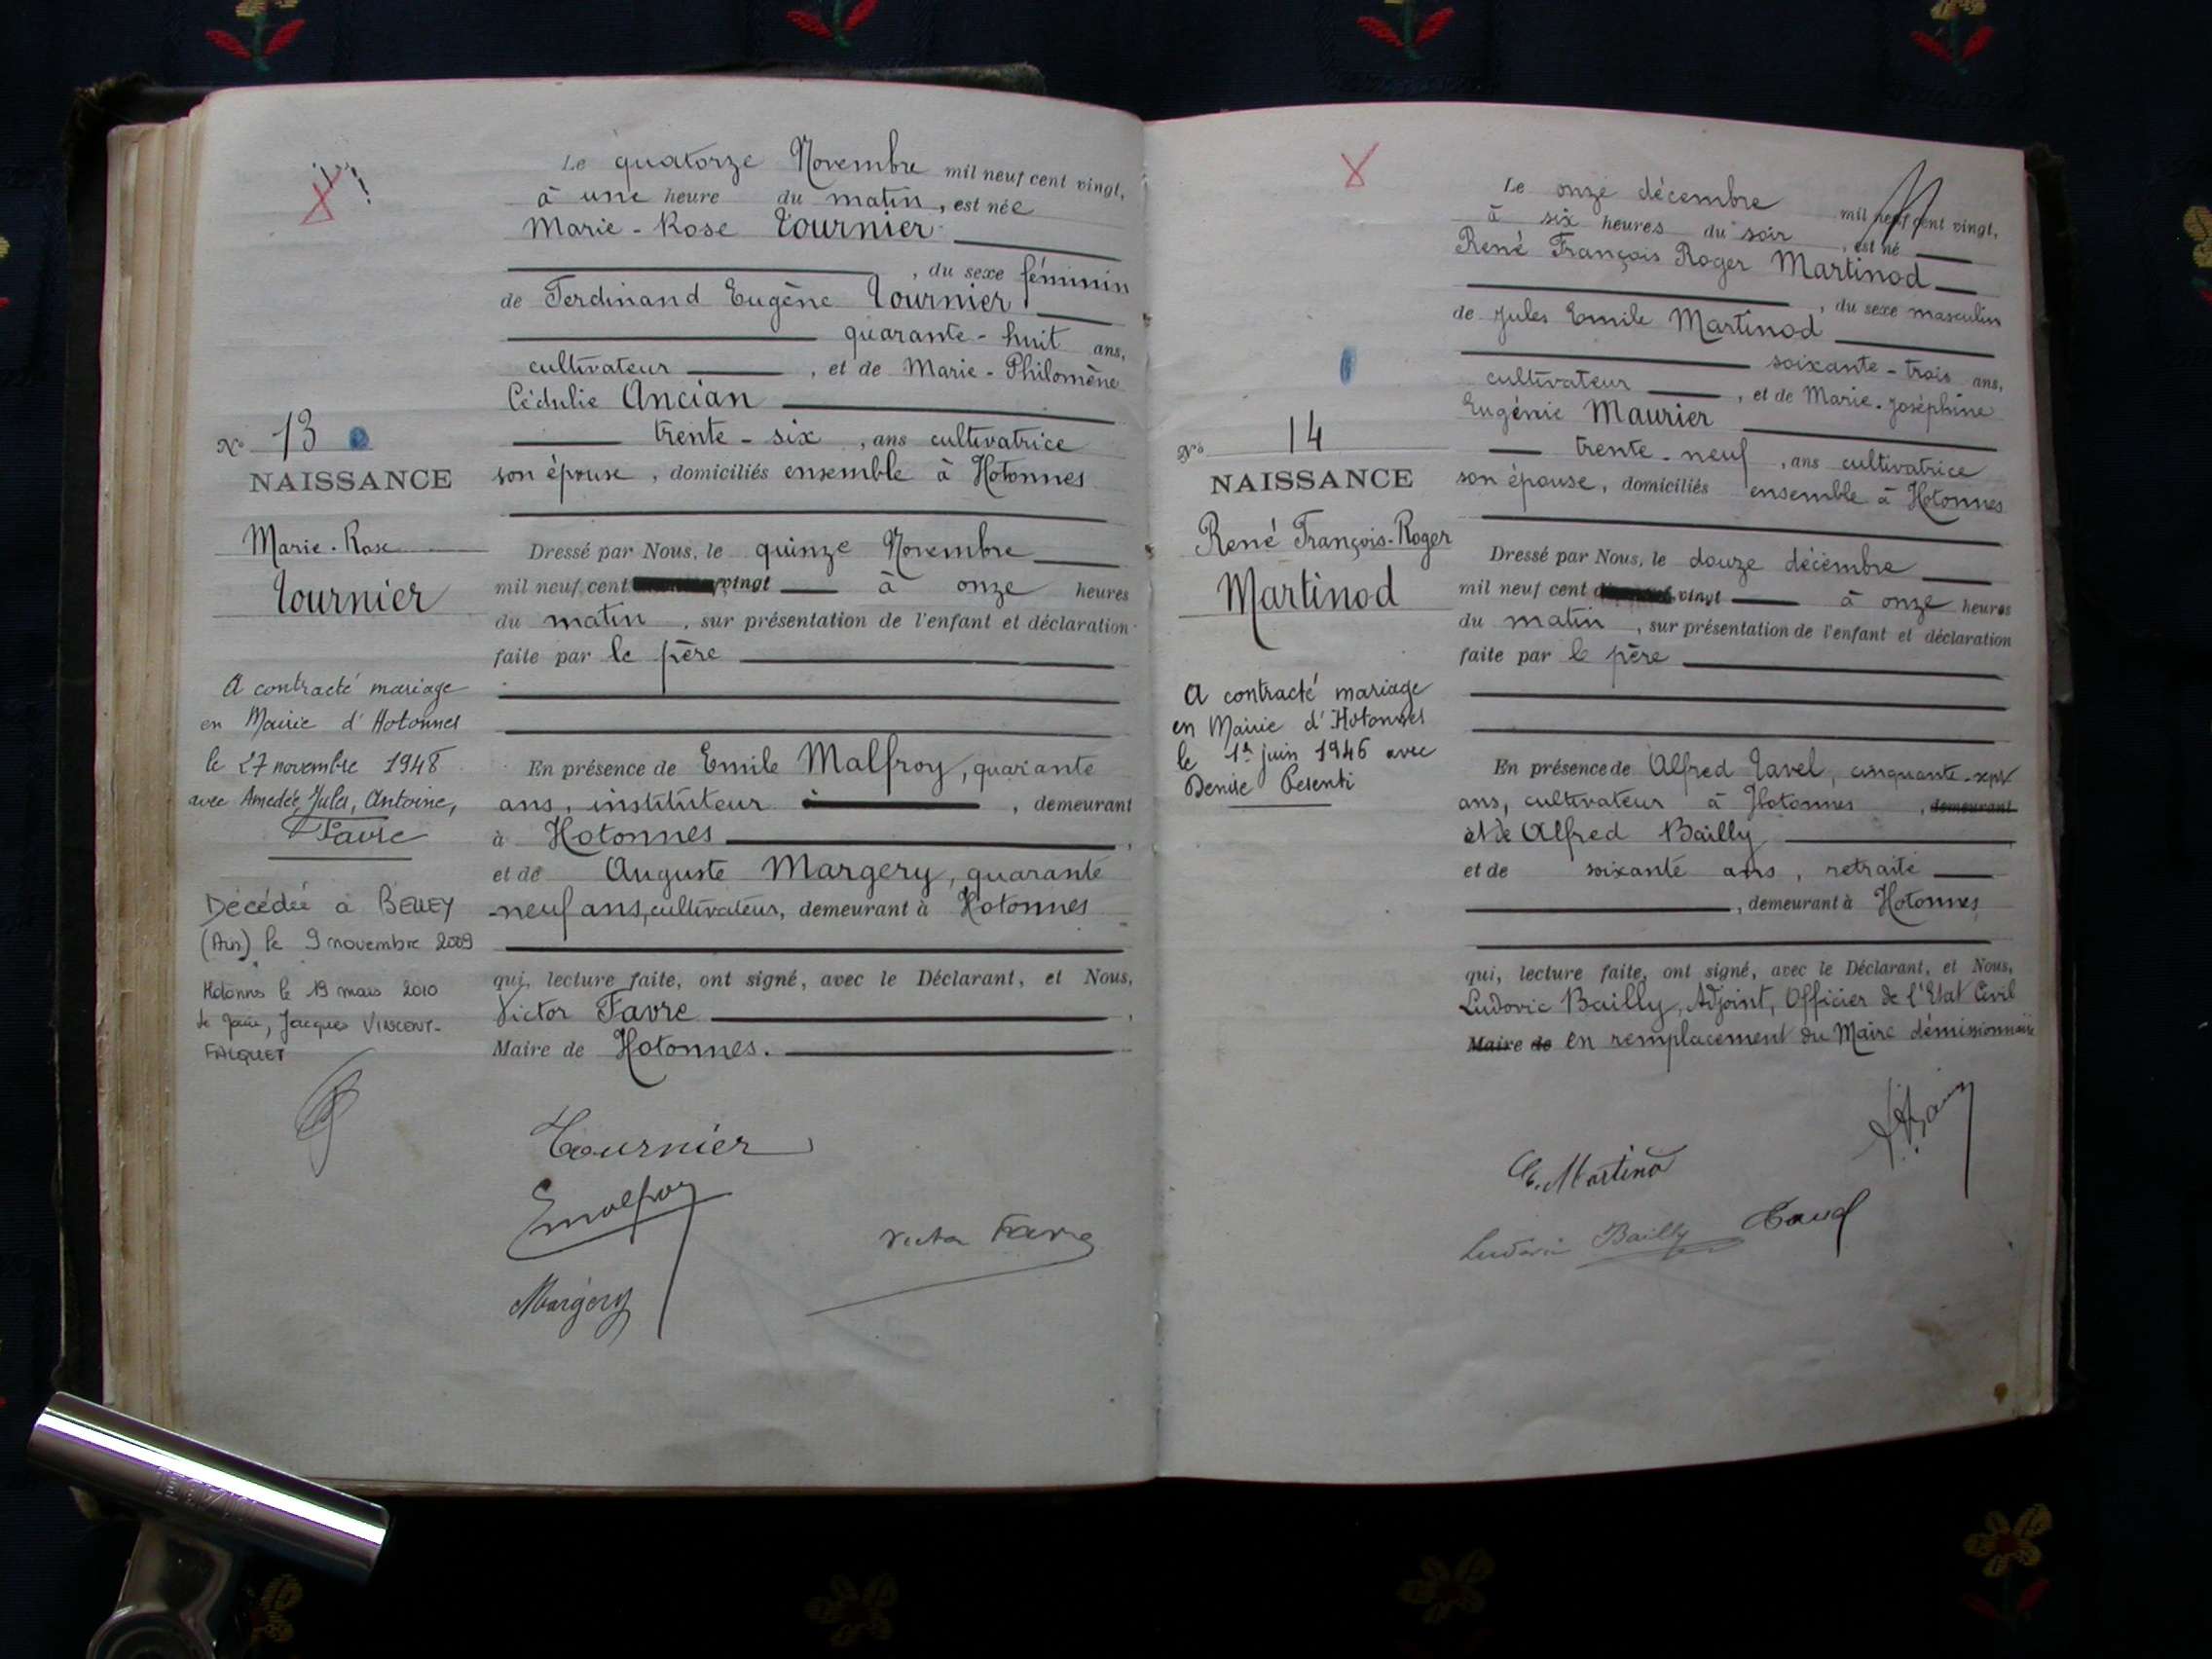 Le quatorze Novembre mil neuf cent vingt,
à une heure du matin, est née
Marie-Rose Tournier
, du sexe féminin
de Ferdinand Eugène Tournier
quarante-huit ans,
cultivateur , et de Marie-Philomène
Cédulie Ancian
trente-six , ans cultivatrice
son épouse, domiciliés ensemble à Hotonnes
Dressé par Nous, le quinze Novembre
mil neuf cent vingt à onze heures
du matin, sur présentation de l'enfant et déclaration
faite par le père
En présence de Emile Malfroy, quarante
ans, instituteur , demeurant
à Hotonnes ,
et de Auguste Margery, quarante
-neuf ans, cultivateur, demeurant à Hotonnes
qui, lecture faite, ont signé, avec le Déclarant, et Nous,
Victor Favre ,
Maire de Hotonnes.
Tournier
Emalfroy
Margery
Victor Favre
No 13
NAISSANCE
Marie-Rose
Tournier
A contracté mariage
en Mairie d'Hotonnes
le 27 novembre 1948
avec Amedée, Jules, Antoine,
Favre
Décédée à BELLEY
(Ain) le 9 novembre 2009
Hotonnes le 19 mars 2010
Le Maire, Jacques VINCENT-
FALQUET
Le onze décembre mil neuf cent vingt,
à six heures du soir , est né
René François Roger Martinod
, du sexe masculin
de Jules Emile Martinod
soixante-trois ans,
cultivateur , et de Marie-Joséphine
Eugénie Maurier
trente-neuf , ans cultivatrice
son épouse, domiciliés ensemble à Hotonnes
Dressé par Nous, le douze décembre
mil neuf cent vingt à onze heures
du matin, sur présentation de l'enfant et déclaration
faite par le père
En présence de Alfred Tavel, cinquante-sept
ans, cultivateur à Hotonnes , demeurant
et de Alfred Bailly
et de soixante ans, retraité
, demeurant à Hotonnes
qui, lecture faite, ont signé, avec le Déclarant, et Nous,
Ludovic Bailly, Adjoint, Officier de l'Etat Civil
Maire de en remplacement du Maire démissionnaire
E. Martinod
Ludovic Bailly
No 14
NAISSANCE
René François-Roger
Martinod
A contracté mariage
en Mairie d'Hotonnes
le 1er juin 1946 avec
Denise Pesenti